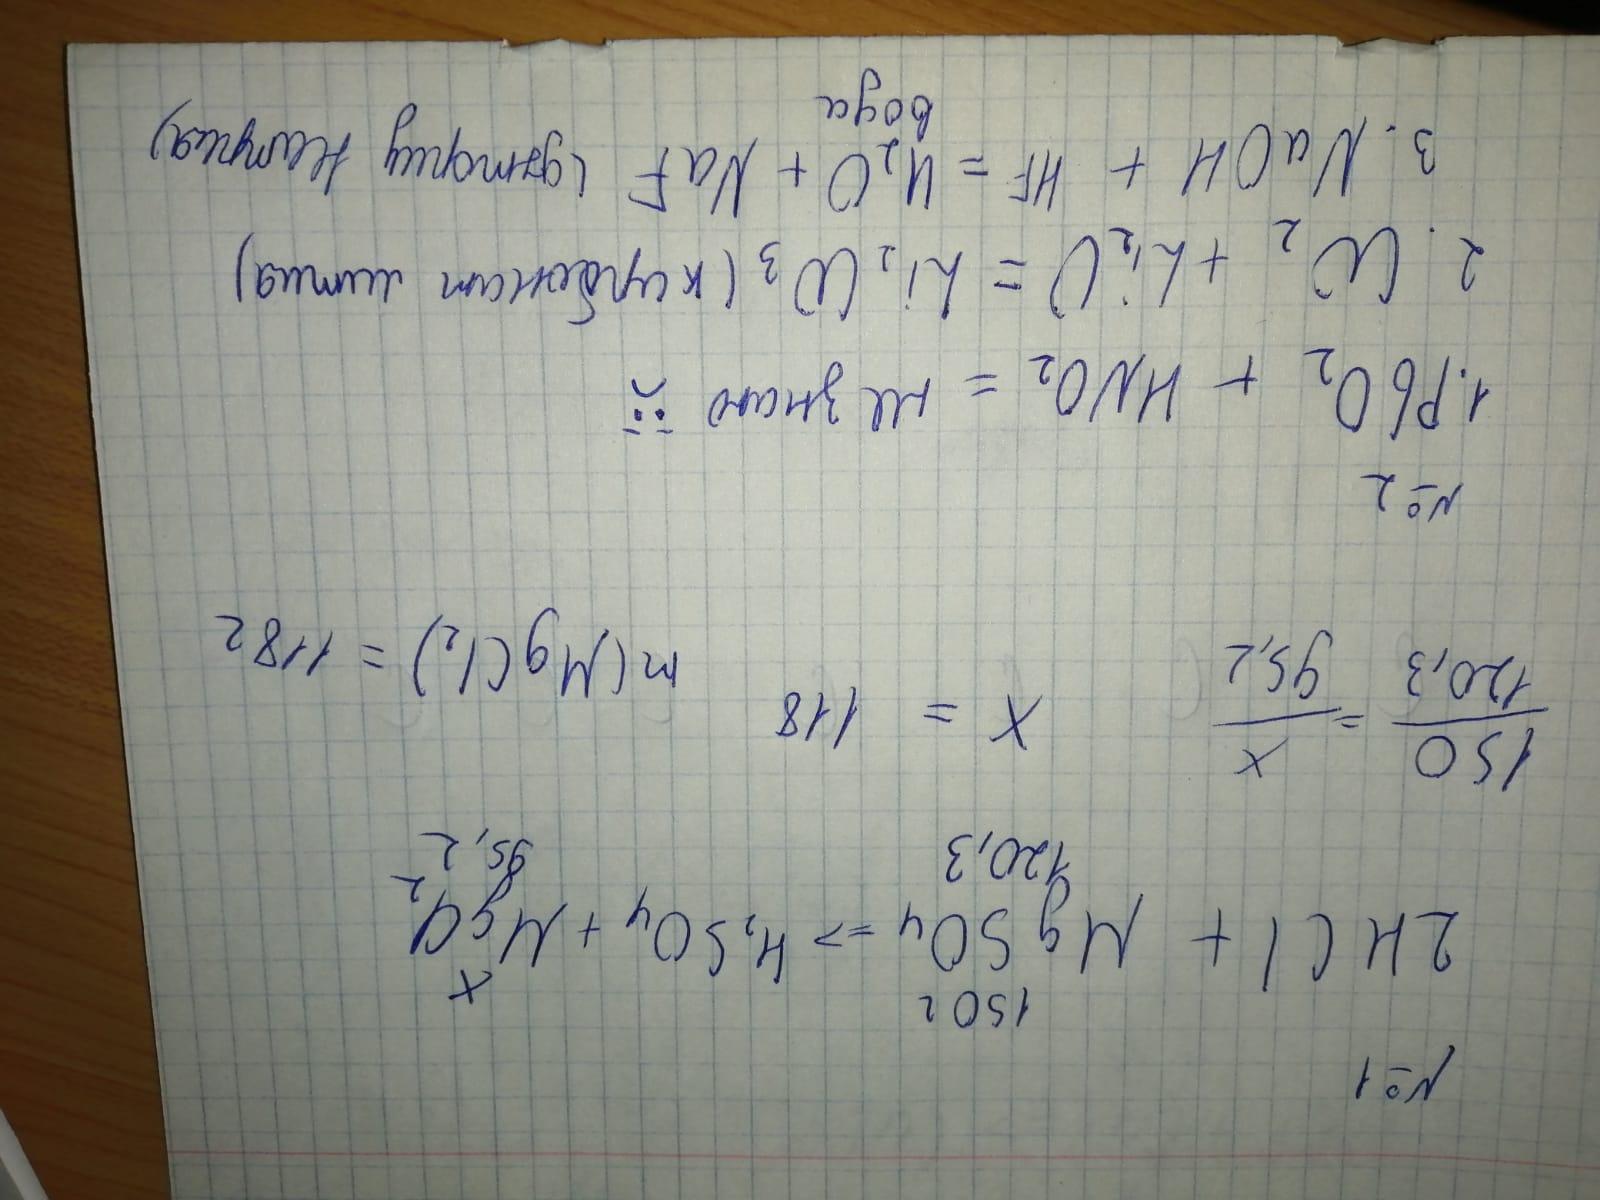 №1
150г x
2HCl + MgSO4 => H2SO4 + MgCl2
120,3 95,2
150/120,3 = x/95,2 x = 118 m(MgCl2) = 118г
№2
1. PbO2 + HNO2 = не знаю
2. CO2 + Li2O = Li2CO3 (карбонат лития)
3. NaOH + HF = H2O + NaF (фторид натрия)
вода